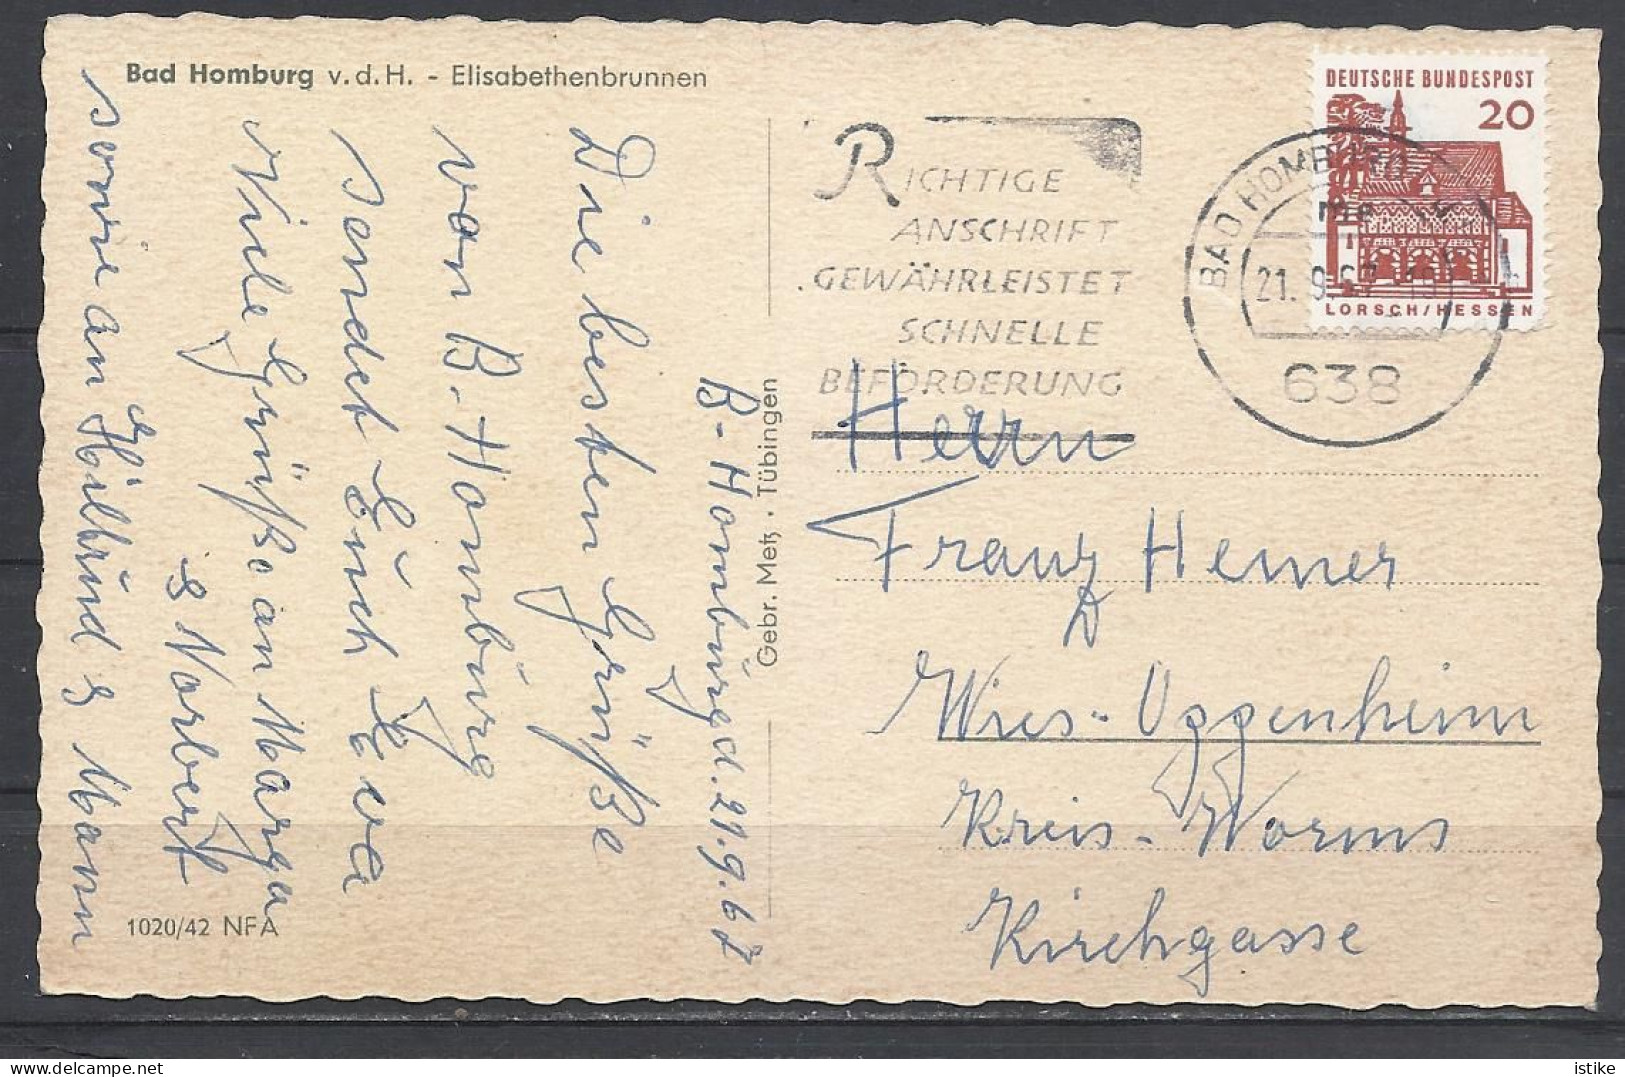 Bad Homburg v.d.H. - Elisabethenbrunnen
B-Homburg d. 21.9.67
Die besten Grüße
von B.-Homburg
sendet Euch Eva
Viele Grüße an Marga
& Norbert
sowie an Hiltrud & Mann
1020/42 NFA
Gebr. Metz · Tübingen
RICHTIGE
ANSCHRIFT
GEWÄHRLEISTET
SCHNELLE
BEFÖRDERUNG
BAD HOMBURG
21.9.67
638
DEUTSCHE BUNDESPOST
20
LORSCH/HESSEN
Herrn
Franz Hemer
Wies-Oppenheim
Kreis-Worms
Kirchgasse
istike